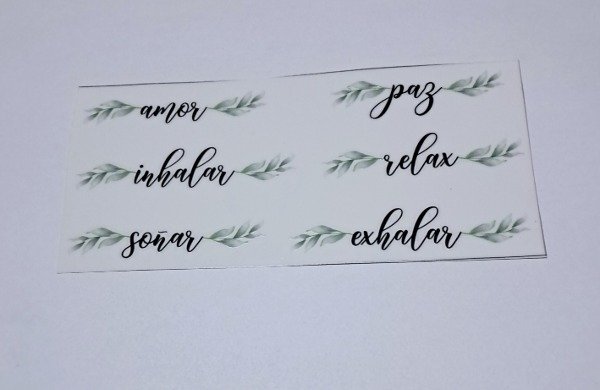 amor
inhalar
soñar
paz
relax
exhalar